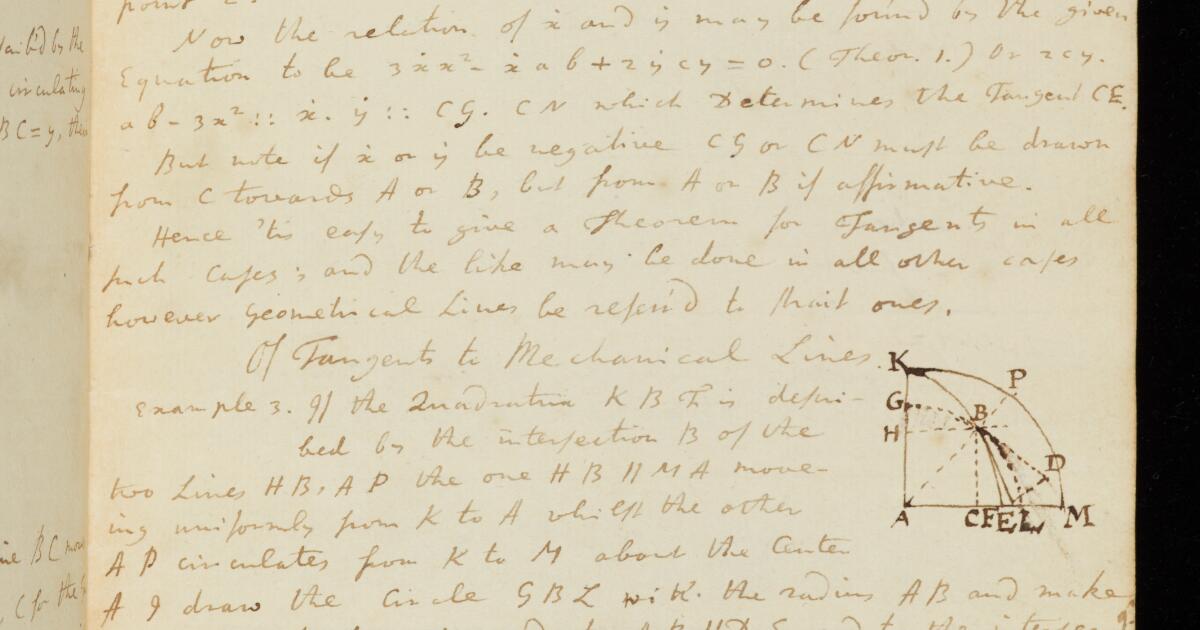 point
Now the relation of ẋ and ẏ may be found by the given
Equation to be 3ẋx² - ẋab + 2ẏcy = 0. (Theor. 1.) Or 2cy.
ab - 3x² :: ẋ. ẏ :: CG. CN which Determines the Tangent CE.
But note if ẋ or ẏ be negative CG or CN must be drawn
from C towards A or B, but from A or B if affirmative.
Hence 'tis easy to give a Theorem for Tangents in all
such cases; and the like may be done in all other cases
however Geometrical Lines be referr'd to strait ones.
Of Tangents to Mechanical Lines.
Example 3. If the Quadratrix KBF is descri-
bed by the intersection B of the
two Lines HB, AP the one HB || MA move-
ing uniformly from K to A whilst the other
AP circulates from K to M about the Center
A I draw the Circle GBL with the radius AB and make
K
P
G
B
H
D
A
C F E L M
the
circulating
BC = y, then
BC
C for the